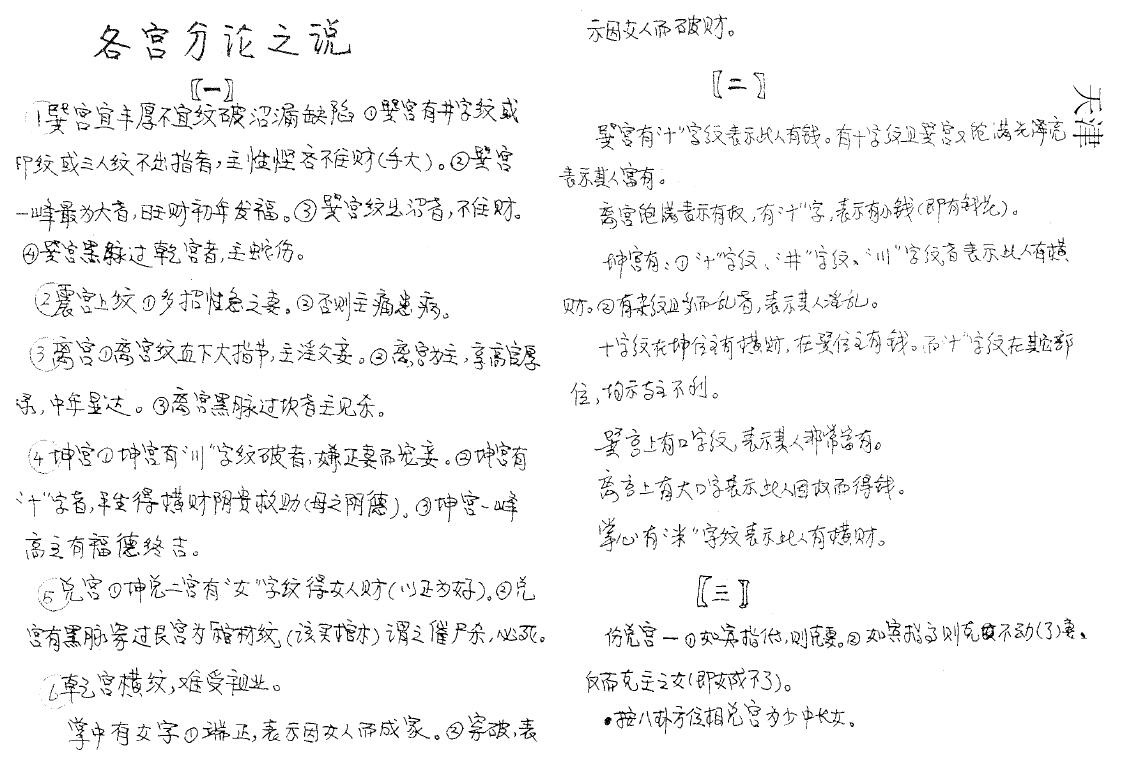 各宫分论之说
〖一〗
①巽宫宜丰厚不宜纹破沼漏缺陷 ①巽宫有井字纹或
印纹或三人纹不出指者,主性悭吝不住财(手大)。②巽宫
一峰最为大者,旺财初年发福。③巽宫纹出沼者,不住财。
④巽宫黑脉过乾宫者,主蛇伤。
②震宫上纹①多招性急之妻。②否则主痛患病。
③离宫①离宫纹直下大指节,主淫欠妾。②离宫为主,享高官厚
录,中年显达。③离宫黑脉过坎者主见杀。
④坤宫①坤宫有“川”字纹破者,嫌正妻而宠妾。②坤宫有
“十”字者,半生得横财阴贵救助(母之阴德)。③坤宫一峰
高主有福德终吉。
⑤兑宫①坤兑二宫有“女”字纹得女人财(以正为好)。②兑
宫有黑脉穿过艮宫为棺材纹,(该买棺木)谓之催尸杀,必死。
⑥乾宫横纹,难受祖业。
掌中有女字①端正,表示因女人而成家。②穿破,表
示因女人而破财。
〖二〗
天津
巽宫有“十”字纹表示此人有钱。有十字纹且巽宫又饱满光泽亮
表示其人富有。
离宫饱满表示有权,有“十”字,表示有小钱(即有钱花)。
坤宫有:①“十”字纹、“井”字纹、“川”字纹者表示此人有横
财。②有杂纹且多而乱者,表示其人淫乱。
十字纹在坤位主有横财,在巽位主有钱。而“十”字纹在其它部
位,均示古主不利。
巽宫上有口字纹,表示其人非常富有。
离宫上有大口字表示此人因权而得钱。
掌心有“米”字纹表示此人有横财。
〖三〗
份兑宫一①如宾指低,则克妻。②如宾指高则克不动(了)妻、
反而克主之女(即女成不了)。
•按八卦方位相兑宫为少中长女。